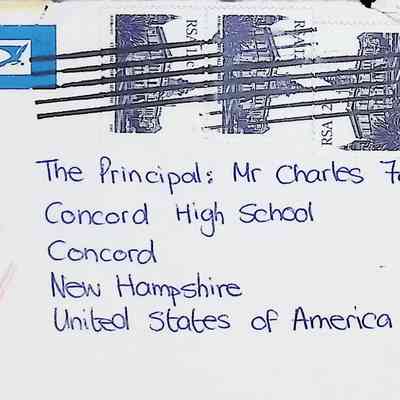 RSA 11c
RSA 11c
RSA 2
The Principal: Mr Charles
Concord High School
Concord
New Hampshire
United States of America